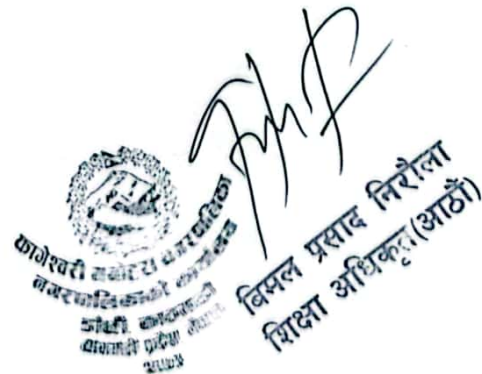 कागेश्वरी मनोहरा नगरपालिका
नगरपालिकाको कार्यालय
डाँछी, काठमाडौं
बागमती प्रदेश, नेपाल
बिमल प्रसाद निरौला
शिक्षा अधिकृत(आठौं)